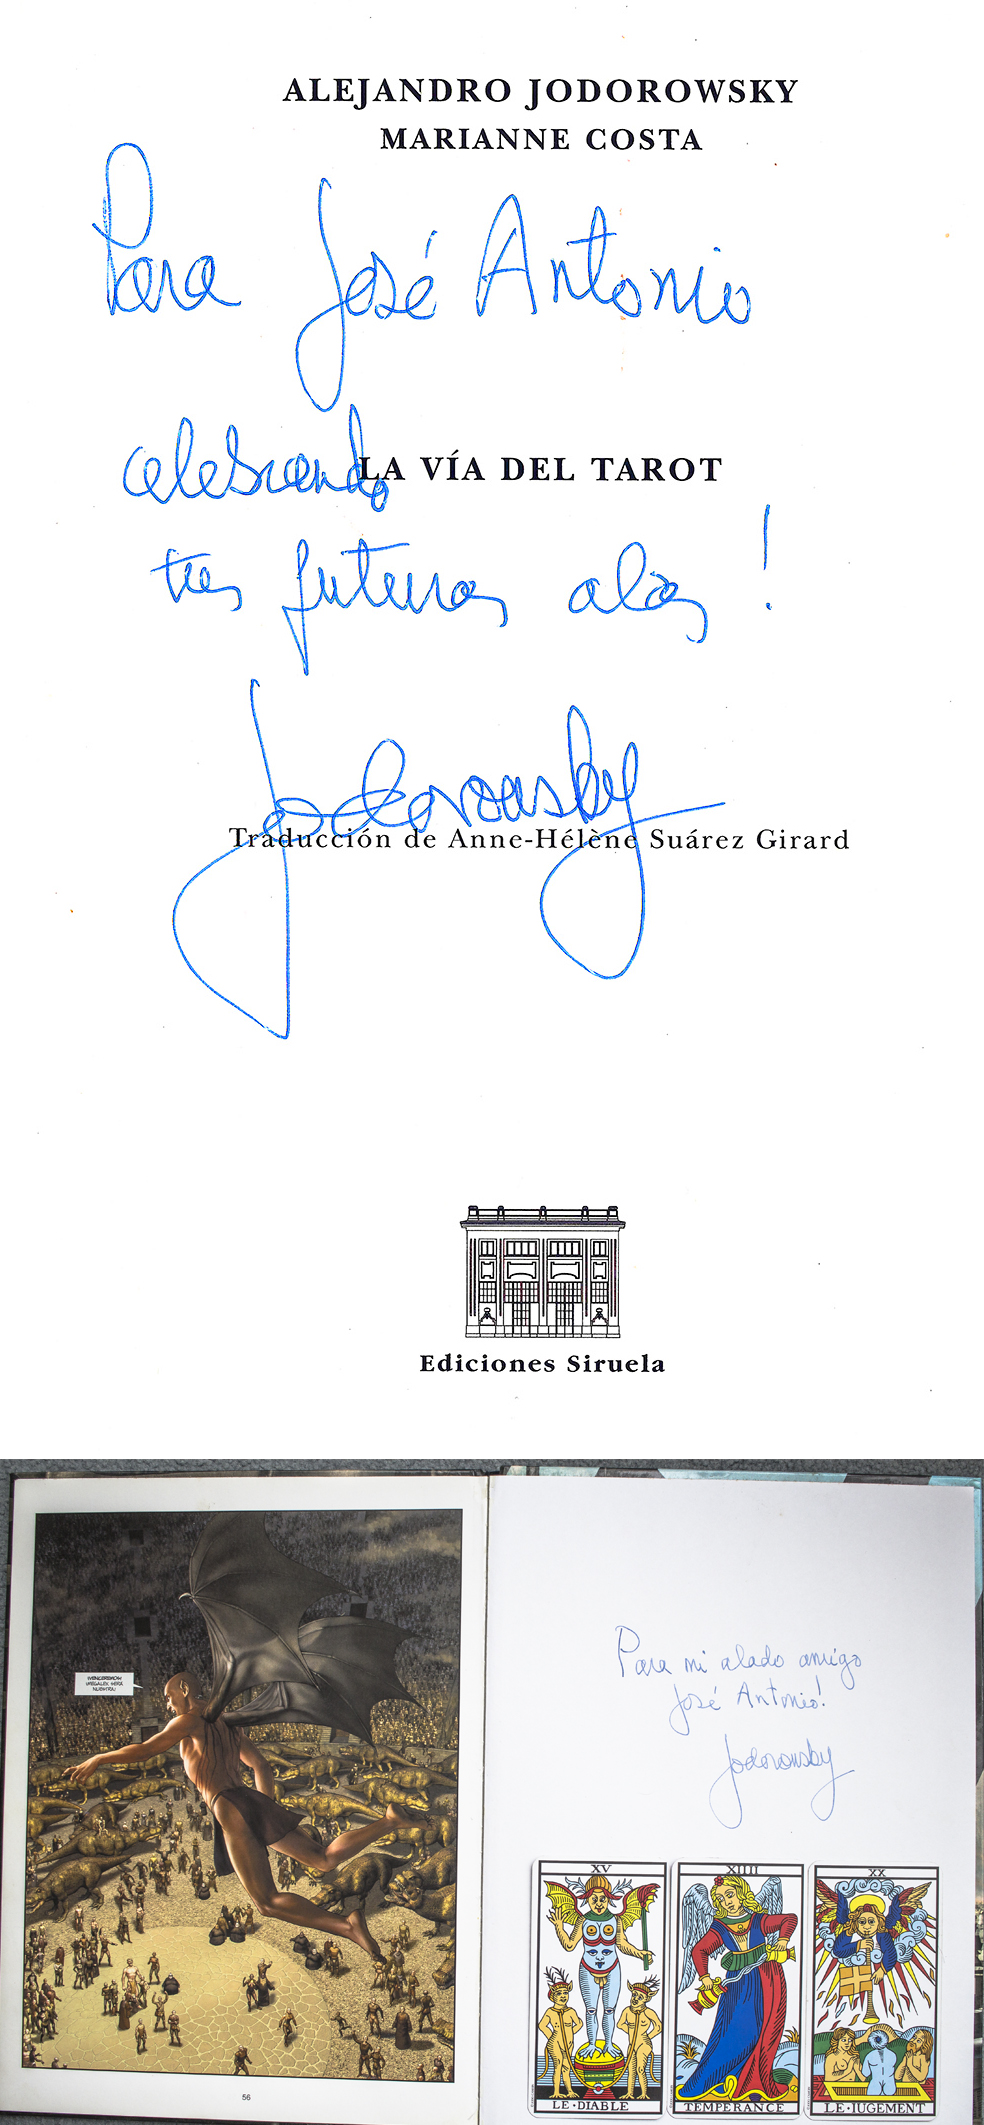 ALEJANDRO JODOROWSKY
MARIANNE COSTA
Para José Antonio
celebrando
LA VÍA DEL TAROT
tus futuras alas!
Jodorowsky
Traducción de Anne-Hélène Suárez Girard
Ediciones Siruela
¡VENCEREMOS!
¡MEGALEX SERÁ
NUESTRA!
56
Para mi alado amigo
José Antonio!
Jodorowsky
XV
LE·DIABLE
XIIII
TEMPERANCE
XX
LE·IUGEMENT